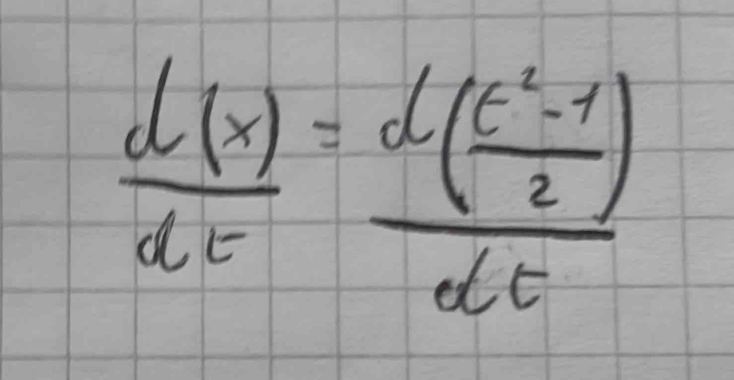 d(x)/dt = d((t²-1)/2)/dt